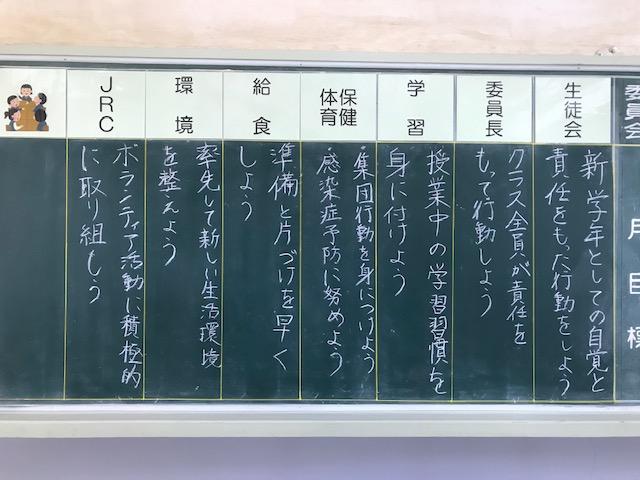 委員会
月目標
生徒会
新学年としての自覚と
責任をもった行動をしよう
委員長
クラス全員が責任を
もって行動しよう
学習
授業中の学習習慣を
身に付けよう
保健
体育
・集団行動を身につけよう
・感染症予防に努めよう
給食
準備と片づけを早く
しよう
環境
率先して新しい生活環境
を整えよう
JRC
ボランティア活動に積極的
に取り組もう